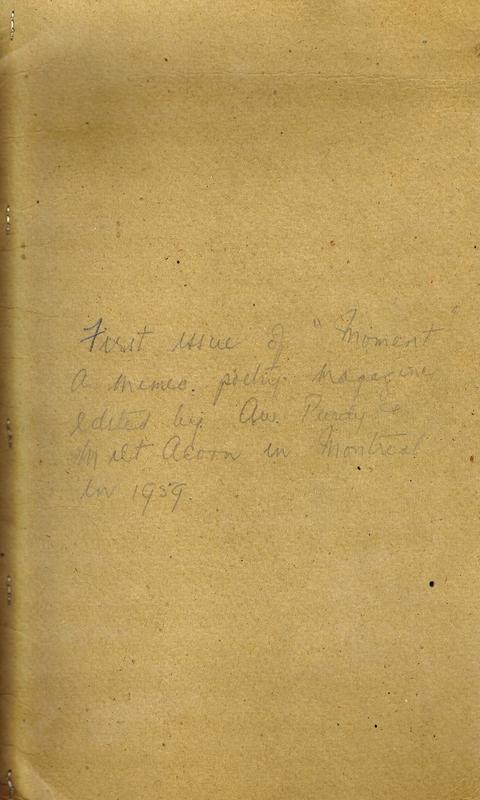 First issue of "Moment"
A mimeo. poetry magazine
edited by Aw. Purdy &
Milt Acorn in Montreal
in 1959.